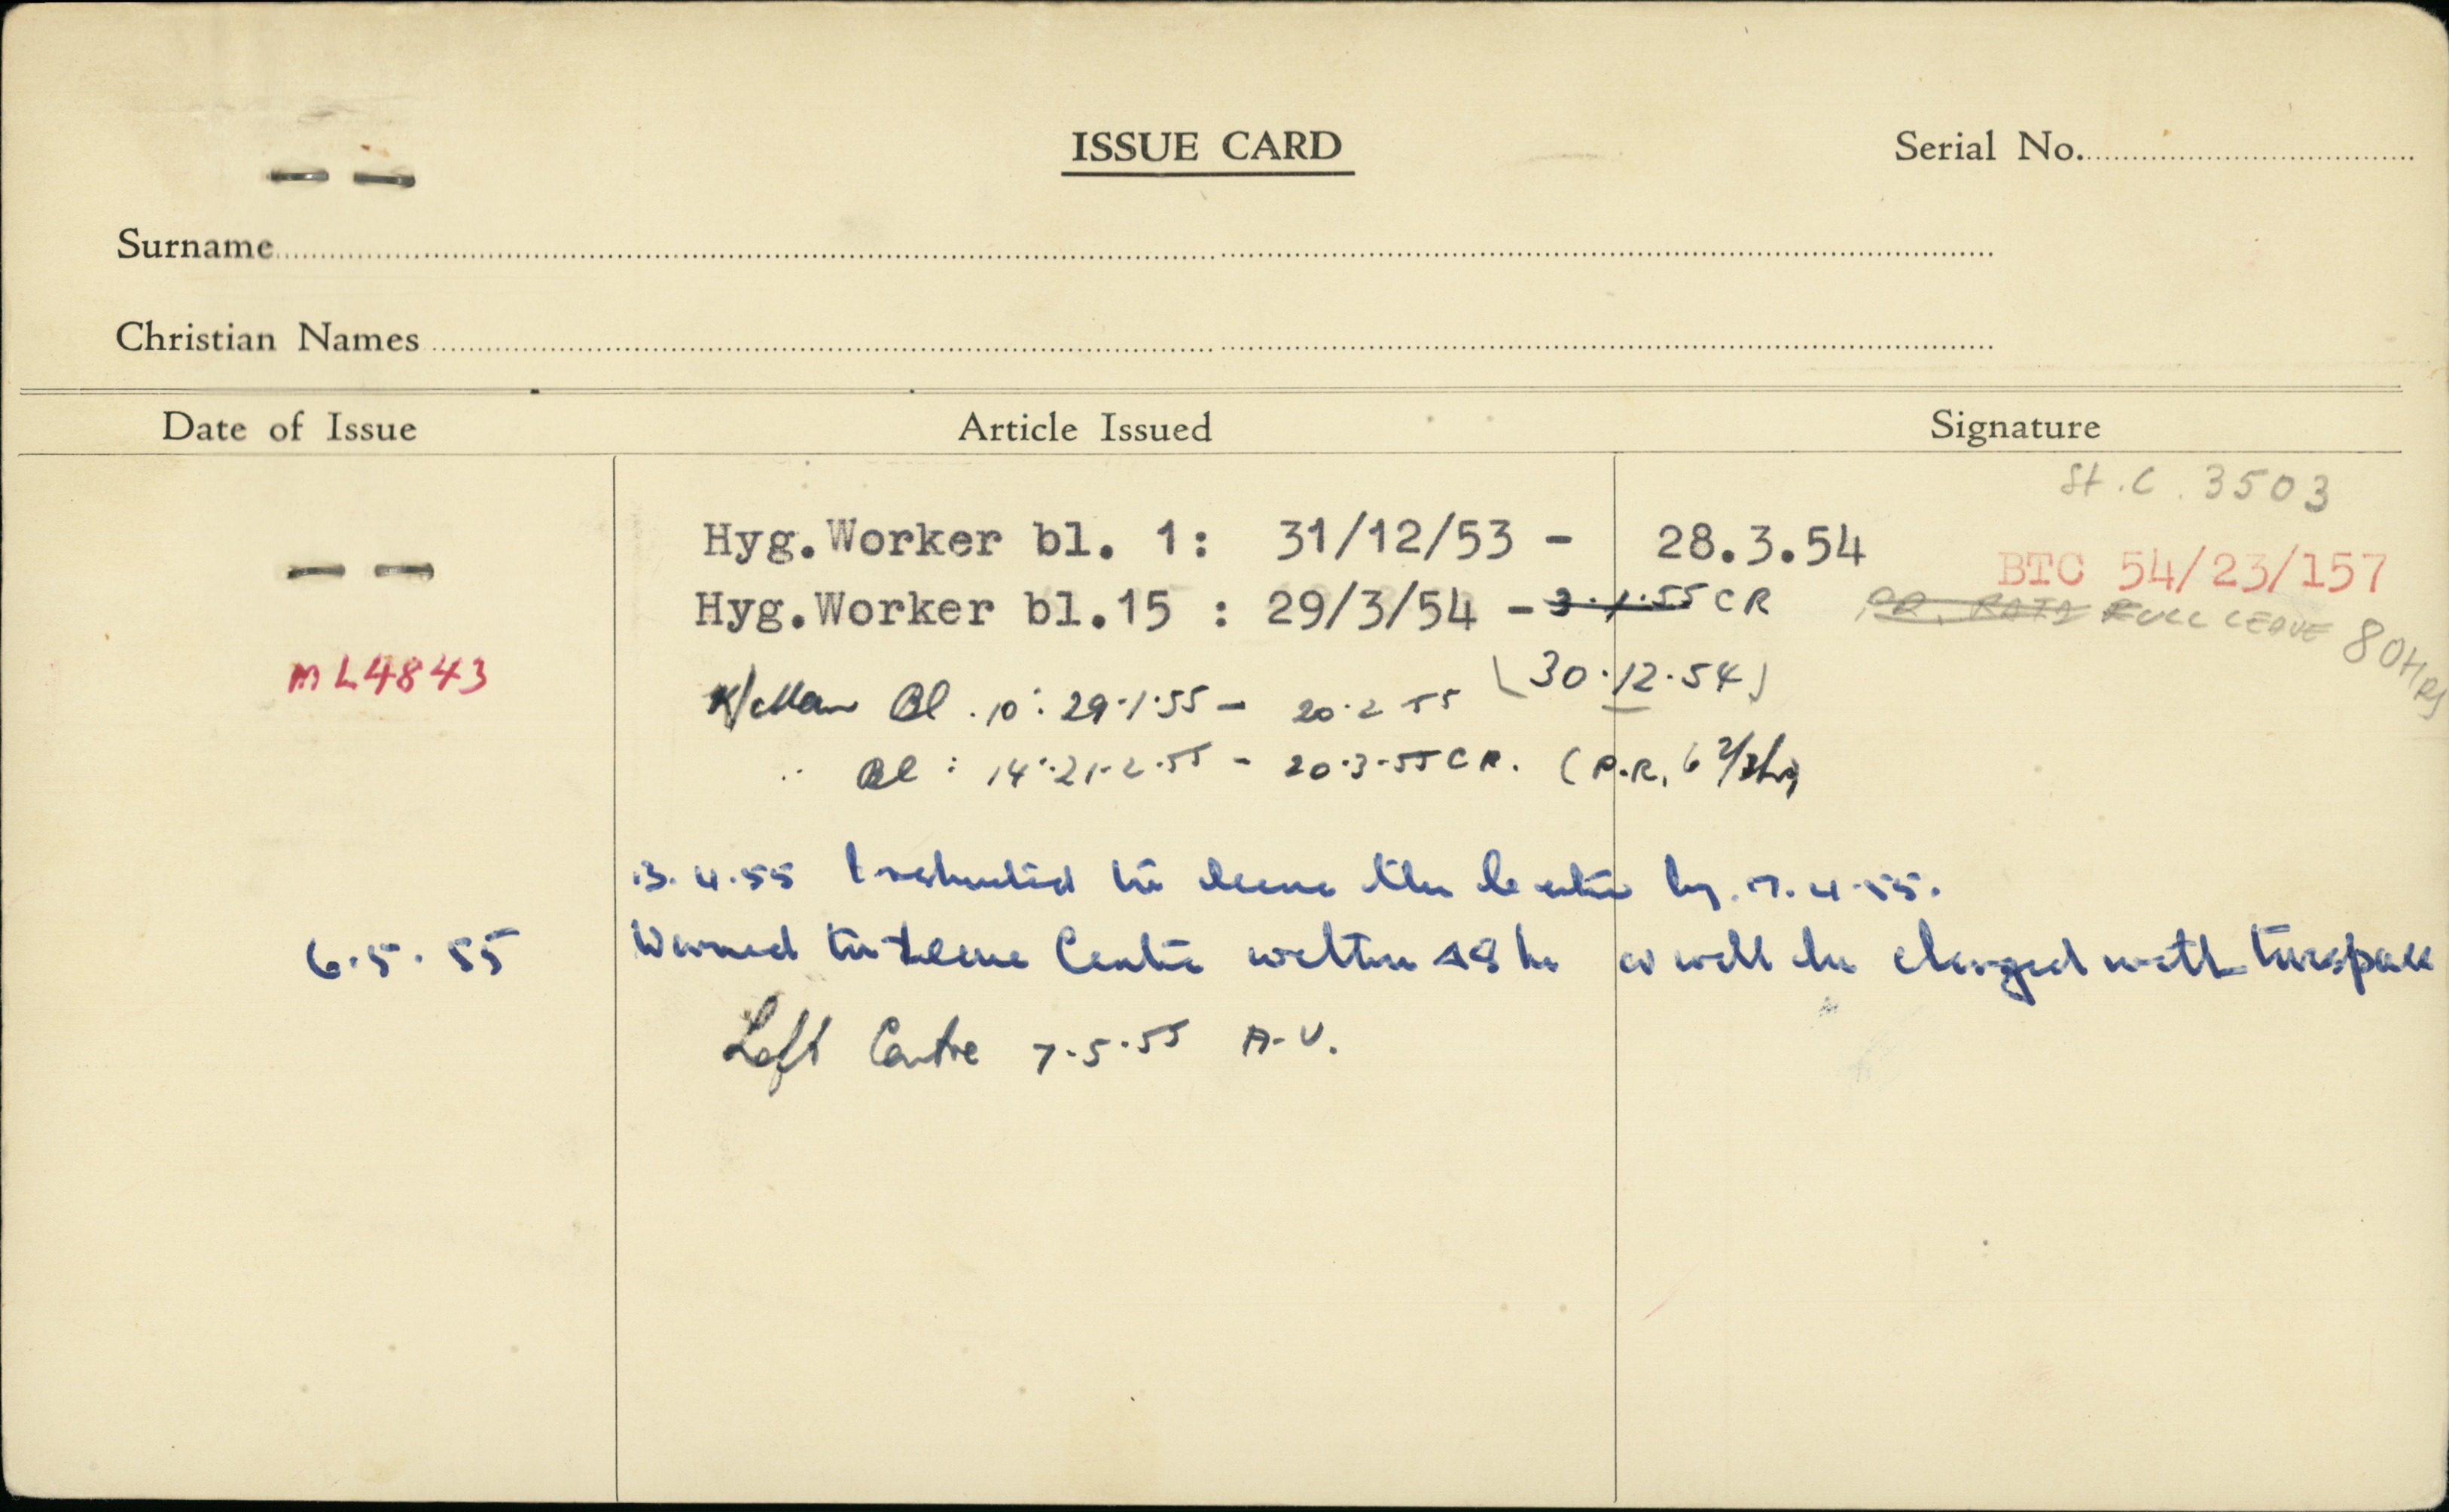 ISSUE CARD
Serial No.
Surname
Christian Names
Date of Issue
Article Issued
Signature
St.C. 3503
Hyg.Worker bl. 1: 31/12/53 - 28.3.54
BTC 54/23/157
Hyg.Worker bl.15 : 29/3/54 - 3.1.55 CR
PR. RATA FULL LEAVE 80HRS
(30.12.54)
ML4843
Bl. 10: 29.1.55 - 20.2 55
Bl : 14: 21.2.55 - 20.3.55 CR. (P.R. 6 2/3 hrs)
3.4.55 leave the Centre by. 7.4.55.
6.5.55
Warned to leave Centre within 48 hr or will be charged with trespass
Left Centre 7.5.55 A.V.